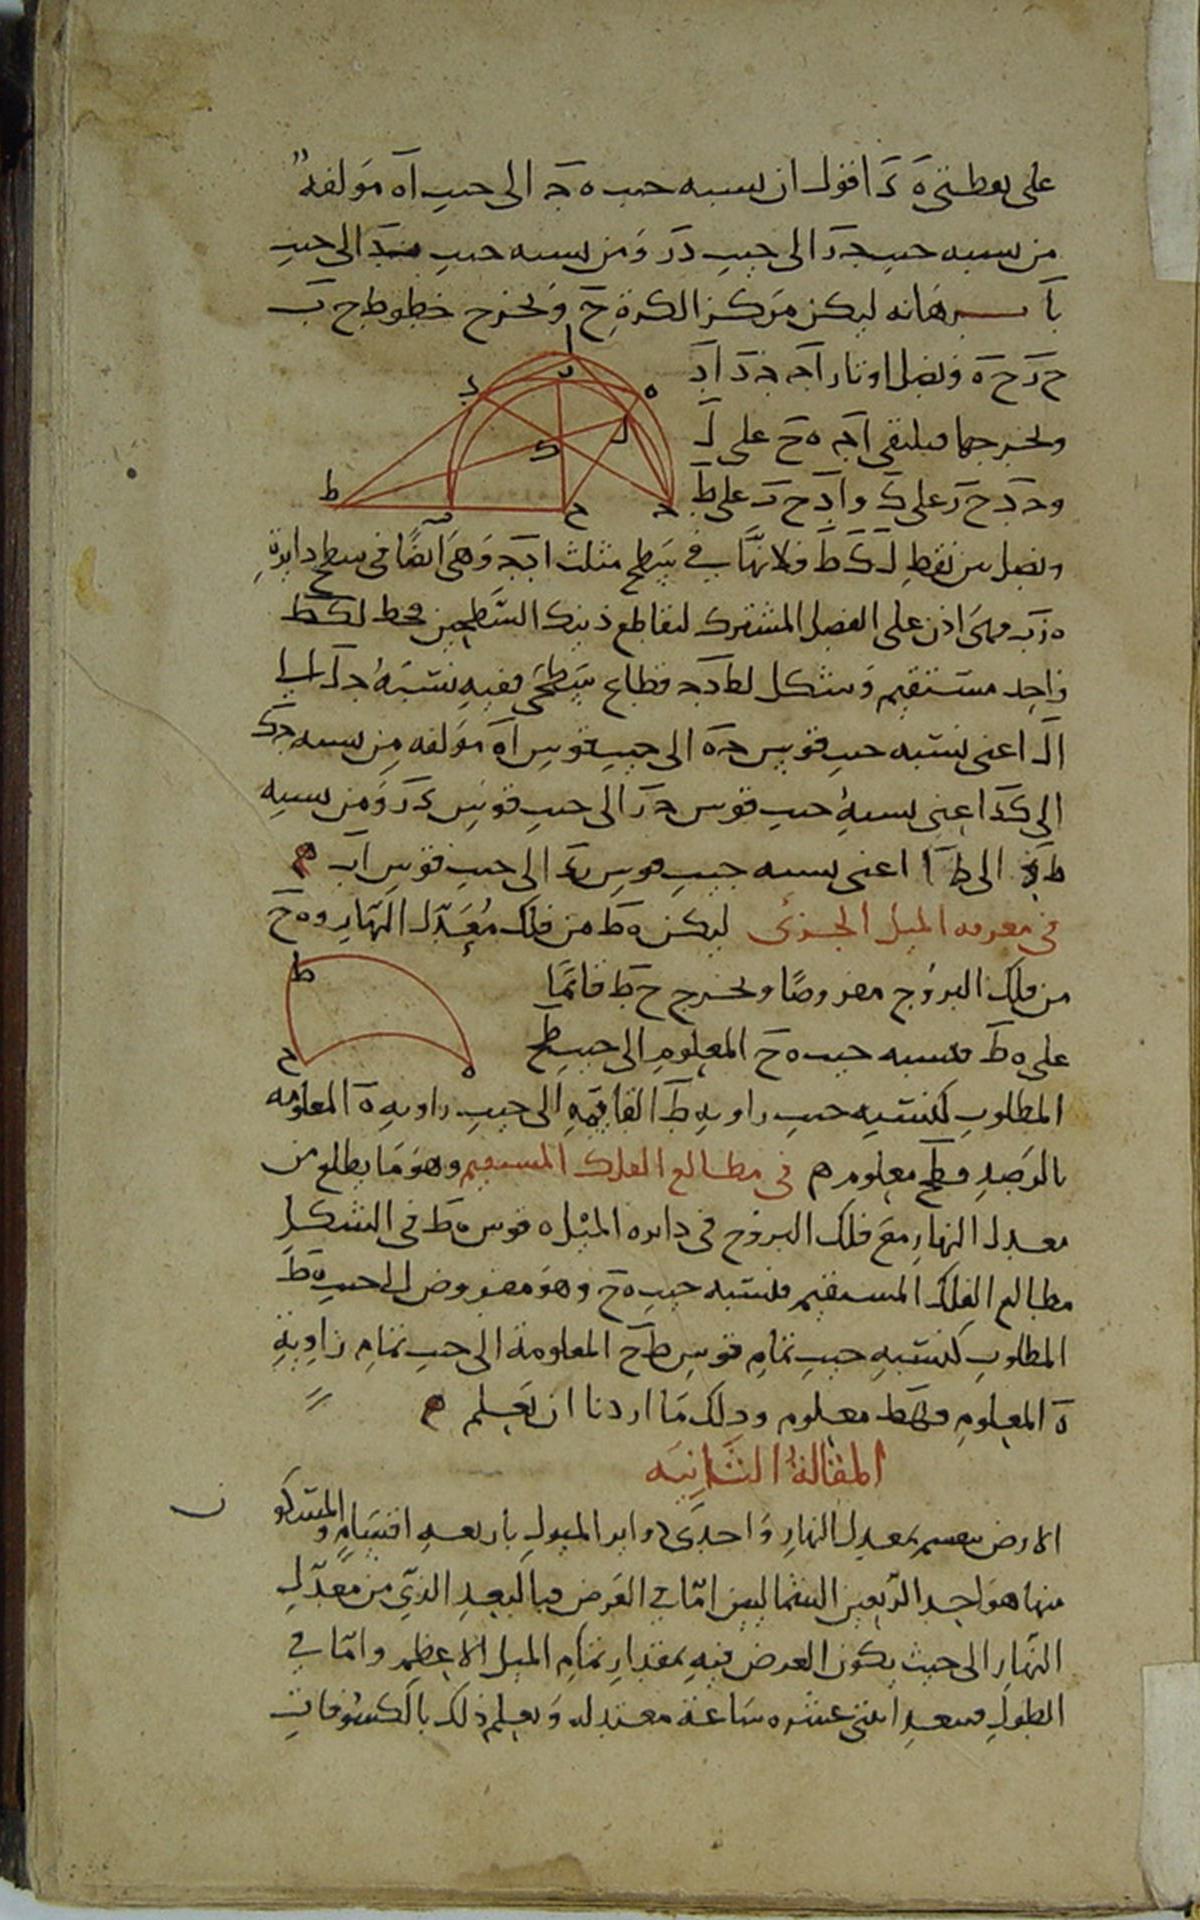 على نقطتي ه ز اقول ان نسبه جيب ه ج الى جيب اه مولفه
من نسبه جيب ج ز الى جيب د ز ومن نسبه جيب الى جيب
با برهانه ليكن مركز الكرة ح ونخرج خطوط ح ب
ح ز ح ه ونصل اوتار اج ج د اد
ونخرجها فيلتقى اج ه ح على ل
و ج د ح ز على ك و اد ح ب على ط
ونصل بين نقط ل ك ط فلانها فى سطح مثلث ا د ج وهى ايضا فى سطح دايرة
ه ز ب فهى اذن على الفصل المشترك لتقاطع ذينك السطحين فخط ل ك ط
واحد مستقيم وشكل ل ط د ج قطاع سطحى ففيه نسبة ج ل الى
ا ل اعنى نسبه جيب قوس ج ه الى جيب قوس اه مولفه من نسبه ج ك
الى ك د اعنى نسبة جيب قوس ج ز الى جيب قوس د ز ومن نسبه
ط د الى ط ا اعنى نسبه جيب قوس ب د الى جيب قوس اب
فى معرفه الميل الجزئى ليكن ه ط من فلك معدل النهار و ه ح
من فلك البروج مفروضا ونخرج ح ط قائما
على ه ط فنسبه جيب ه ح المعلوم الى جيب ط ح
المطلوب كنسبه جيب زاويه ط القايمه الى جيب زاويه ه المعلومه
بالرصد ف ط ح معلوم فى مطالع الفلك المستقيم وهو ما يطلع من
معدل النهار مع فلك البروج فى دايره الميل ه قوس ه ط فى الشكل
مطالع الفلك المستقيم فنسبه جيب ه ح وهو مفروض الى جيب ه ط
المطلوب كنسبه جيب تمام قوس ط ح المعلومة الى جيب تمام زاوية
ه المعلوم ف ه ط معلوم وذلك ما اردنا ان نعلم
المقالة الثانيه
الارض ينقسم بمعدل النهار واحدى دواير الميول باربعه اقسام والمسكون
منها هو احد الربعين الشماليين اما فى العرض فبالبعد الذى من معدل
النهار الى حيث يكون العرض فيه بمقدار تمام الميل الاعظم واما فى
الطول فببعد اثنى عشره ساعة معتدله ويعلم ذلك بالكسوفات
ا
د
ز
ه
ل
ك
ط
ب
ح
ج
ط
ح
ه